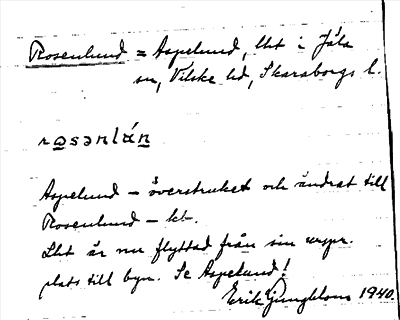 Rosenlund = Aspelund, lht i Jäla
sn, Vilske hd, Skaraborgs l.
rosənlán
Aspelund – överstruket och ändrat till
Rosenlund – kb.
Lht är nu flyttad från sin urspr.
plats till byn. Se Aspelund!
Erik Ljungblom 1940.